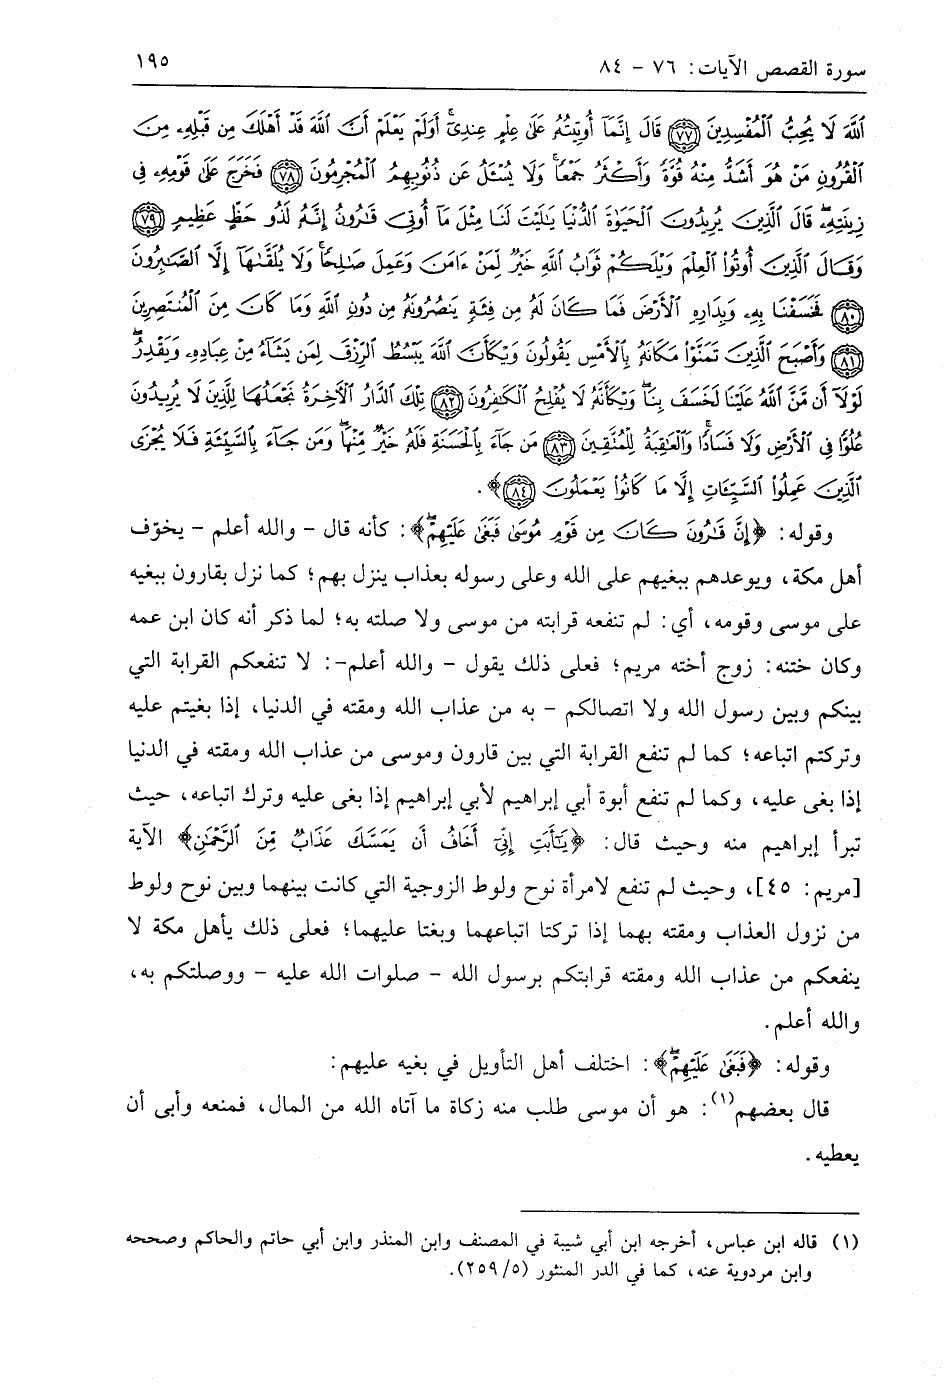 سورة القصص الآيات: ٧٦ - ٨٤
١٩٥
ٱللَّهَ لَا يُحِبُّ ٱلْمُفْسِدِينَ ﴿٧٧﴾ قَالَ إِنَّمَآ أُوتِيتُهُۥ عَلَىٰ عِلْمٍ عِندِىٓ ۚ أَوَلَمْ يَعْلَمْ أَنَّ ٱللَّهَ قَدْ أَهْلَكَ مِن قَبْلِهِۦ مِنَ
ٱلْقُرُونِ مَنْ هُوَ أَشَدُّ مِنْهُ قُوَّةً وَأَكْثَرُ جَمْعًا ۚ وَلَا يُسْـَٔلُ عَن ذُنُوبِهِمُ ٱلْمُجْرِمُونَ ﴿٧٨﴾ فَخَرَجَ عَلَىٰ قَوْمِهِۦ فِى
زِينَتِهِۦ ۖ قَالَ ٱلَّذِينَ يُرِيدُونَ ٱلْحَيَوٰةَ ٱلدُّنْيَا يَٰلَيْتَ لَنَا مِثْلَ مَآ أُوتِىَ قَٰرُونُ إِنَّهُۥ لَذُو حَظٍّ عَظِيمٍ ﴿٧٩﴾
وَقَالَ ٱلَّذِينَ أُوتُوا۟ ٱلْعِلْمَ وَيْلَكُمْ ثَوَابُ ٱللَّهِ خَيْرٌ لِّمَنْ ءَامَنَ وَعَمِلَ صَٰلِحًا ۚ وَلَا يُلَقَّىٰهَآ إِلَّا ٱلصَّٰبِرُونَ
﴿٨٠﴾ فَخَسَفْنَا بِهِۦ وَبِدَارِهِ ٱلْأَرْضَ فَمَا كَانَ لَهُۥ مِن فِئَةٍ يَنصُرُونَهُۥ مِن دُونِ ٱللَّهِ وَمَا كَانَ مِنَ ٱلْمُنتَصِرِينَ
﴿٨١﴾ وَأَصْبَحَ ٱلَّذِينَ تَمَنَّوْا۟ مَكَانَهُۥ بِٱلْأَمْسِ يَقُولُونَ وَيْكَأَنَّ ٱللَّهَ يَبْسُطُ ٱلرِّزْقَ لِمَن يَشَآءُ مِنْ عِبَادِهِۦ وَيَقْدِرُ ۖ
لَوْلَآ أَن مَّنَّ ٱللَّهُ عَلَيْنَا لَخَسَفَ بِنَا ۖ وَيْكَأَنَّهُۥ لَا يُفْلِحُ ٱلْكَٰفِرُونَ ﴿٨٢﴾ تِلْكَ ٱلدَّارُ ٱلْءَاخِرَةُ نَجْعَلُهَا لِلَّذِينَ لَا يُرِيدُونَ
عُلُوًّا فِى ٱلْأَرْضِ وَلَا فَسَادًا ۚ وَٱلْعَٰقِبَةُ لِلْمُتَّقِينَ ﴿٨٣﴾ مَن جَآءَ بِٱلْحَسَنَةِ فَلَهُۥ خَيْرٌ مِّنْهَا ۖ وَمَن جَآءَ بِٱلسَّيِّئَةِ فَلَا يُجْزَى
ٱلَّذِينَ عَمِلُوا۟ ٱلسَّيِّـَٔاتِ إِلَّا مَا كَانُوا۟ يَعْمَلُونَ ﴿٨٤﴾﴾.
وقوله: ﴿إِنَّ قَٰرُونَ كَانَ مِن قَوْمِ مُوسَىٰ فَبَغَىٰ عَلَيْهِمْ ۖ﴾: كأنه قال - والله أعلم - يخوّف
أهل مكة، ويوعدهم ببغيهم على الله وعلى رسوله بعذاب ينزل بهم؛ كما نزل بقارون ببغيه
على موسى وقومه، أي: لم تنفعه قرابته من موسى ولا صلته به؛ لما ذكر أنه كان ابن عمه
وكان ختنه: زوج أخته مريم؛ فعلى ذلك يقول - والله أعلم-: لا تنفعكم القرابة التي
بينكم وبين رسول الله ولا اتصالكم - به من عذاب الله ومقته في الدنيا، إذا بغيتم عليه
وتركتم اتباعه؛ كما لم تنفع القرابة التي بين قارون وموسى من عذاب الله ومقته في الدنيا
إذا بغى عليه، وكما لم تنفع أبوة أبي إبراهيم لأبي إبراهيم إذا بغى عليه وترك اتباعه، حيث
تبرأ إبراهيم منه وحيث قال: ﴿يَٰٓأَبَتِ إِنِّىٓ أَخَافُ أَن يَمَسَّكَ عَذَابٌ مِّنَ ٱلرَّحْمَٰنِ﴾ الآية
[مريم: ٤٥]، وحيث لم تنفع لامرأة نوح ولوط الزوجية التي كانت بينهما وبين نوح ولوط
من نزول العذاب ومقته بهما إذا تركتا اتباعهما وبغتا عليهما؛ فعلى ذلك يأهل مكة لا
ينفعكم من عذاب الله ومقته قرابتكم برسول الله - صلوات الله عليه - ووصلتكم به،
والله أعلم.
وقوله: ﴿فَبَغَىٰ عَلَيْهِمْ ۖ﴾: اختلف أهل التأويل في بغيه عليهم:
قال بعضهم(١): هو أن موسى طلب منه زكاة ما آتاه الله من المال، فمنعه وأبى أن
يعطيه.
(١) قاله ابن عباس، أخرجه ابن أبي شيبة في المصنف وابن المنذر وابن أبي حاتم والحاكم وصححه
وابن مردوية عنه، كما في الدر المنثور (٢٥٩/٥).